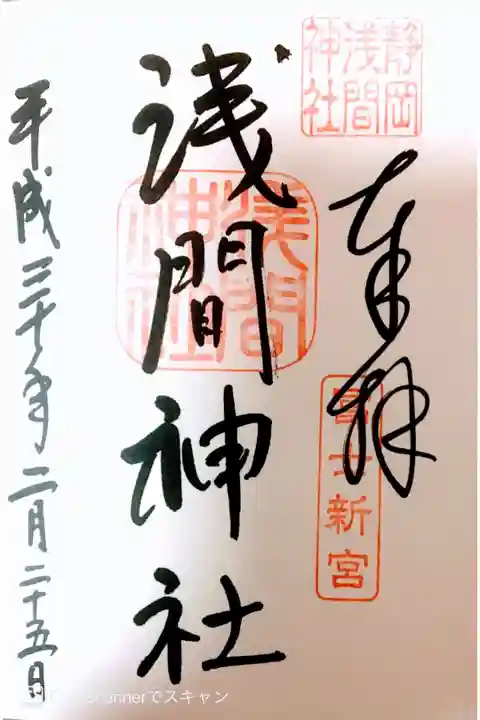 静岡
浅間
神社
奉拝
富士新宮
浅間神社
浅間
神社
平成三十年二月二十五日
でスキャン